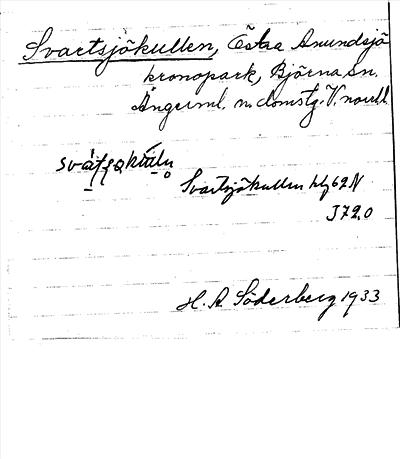 Svartsjökullen, Östra Anundsjö
kronopark, Björna sn.
Ångerml. n. domstg. V. norrl.
Svartsjökullen hlf 62 N
J 72.0
H. A. Söderberg 1933